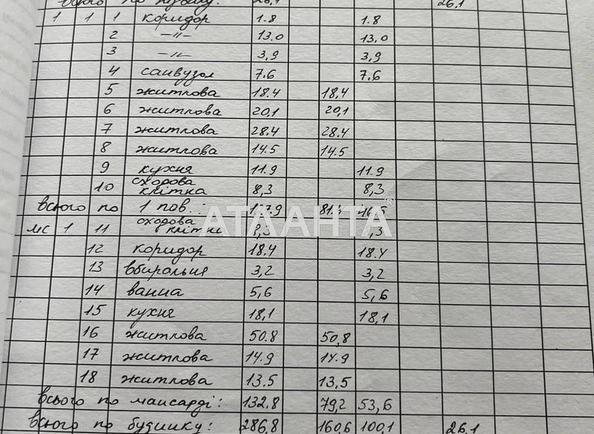 всього по підвалу: 26,1 26,1
1 1 1 коридор 1.8 1.8
2 —"— 13.0 13,0
3 —"— 3,9 3,9
4 санвузол 7.6 7.6
5 житлова 18.4 18,4
6 житлова 20,1 20,1
7 житлова 28.4 28.4
8 житлова 14.5 14.5
9 кухня 11.9 11.9
10 сходова клітка 8,3 8,3
всього по 1 пов.
АТЛАНТА
мс 1 11 сходова клітка
12 коридор 18.4 18.4
13 вбиральня 3,2 3,2
14 ванна 5,6 5,6
15 кухня 18,1 18,1
16 житлова 50.8 50,8
17 житлова 14.9 14.9
18 житлова 13.5 13,5
всього по мансарді: 132,8 79,2 53,6
всього по будинку: 286,8 160,6 100,1 26,1